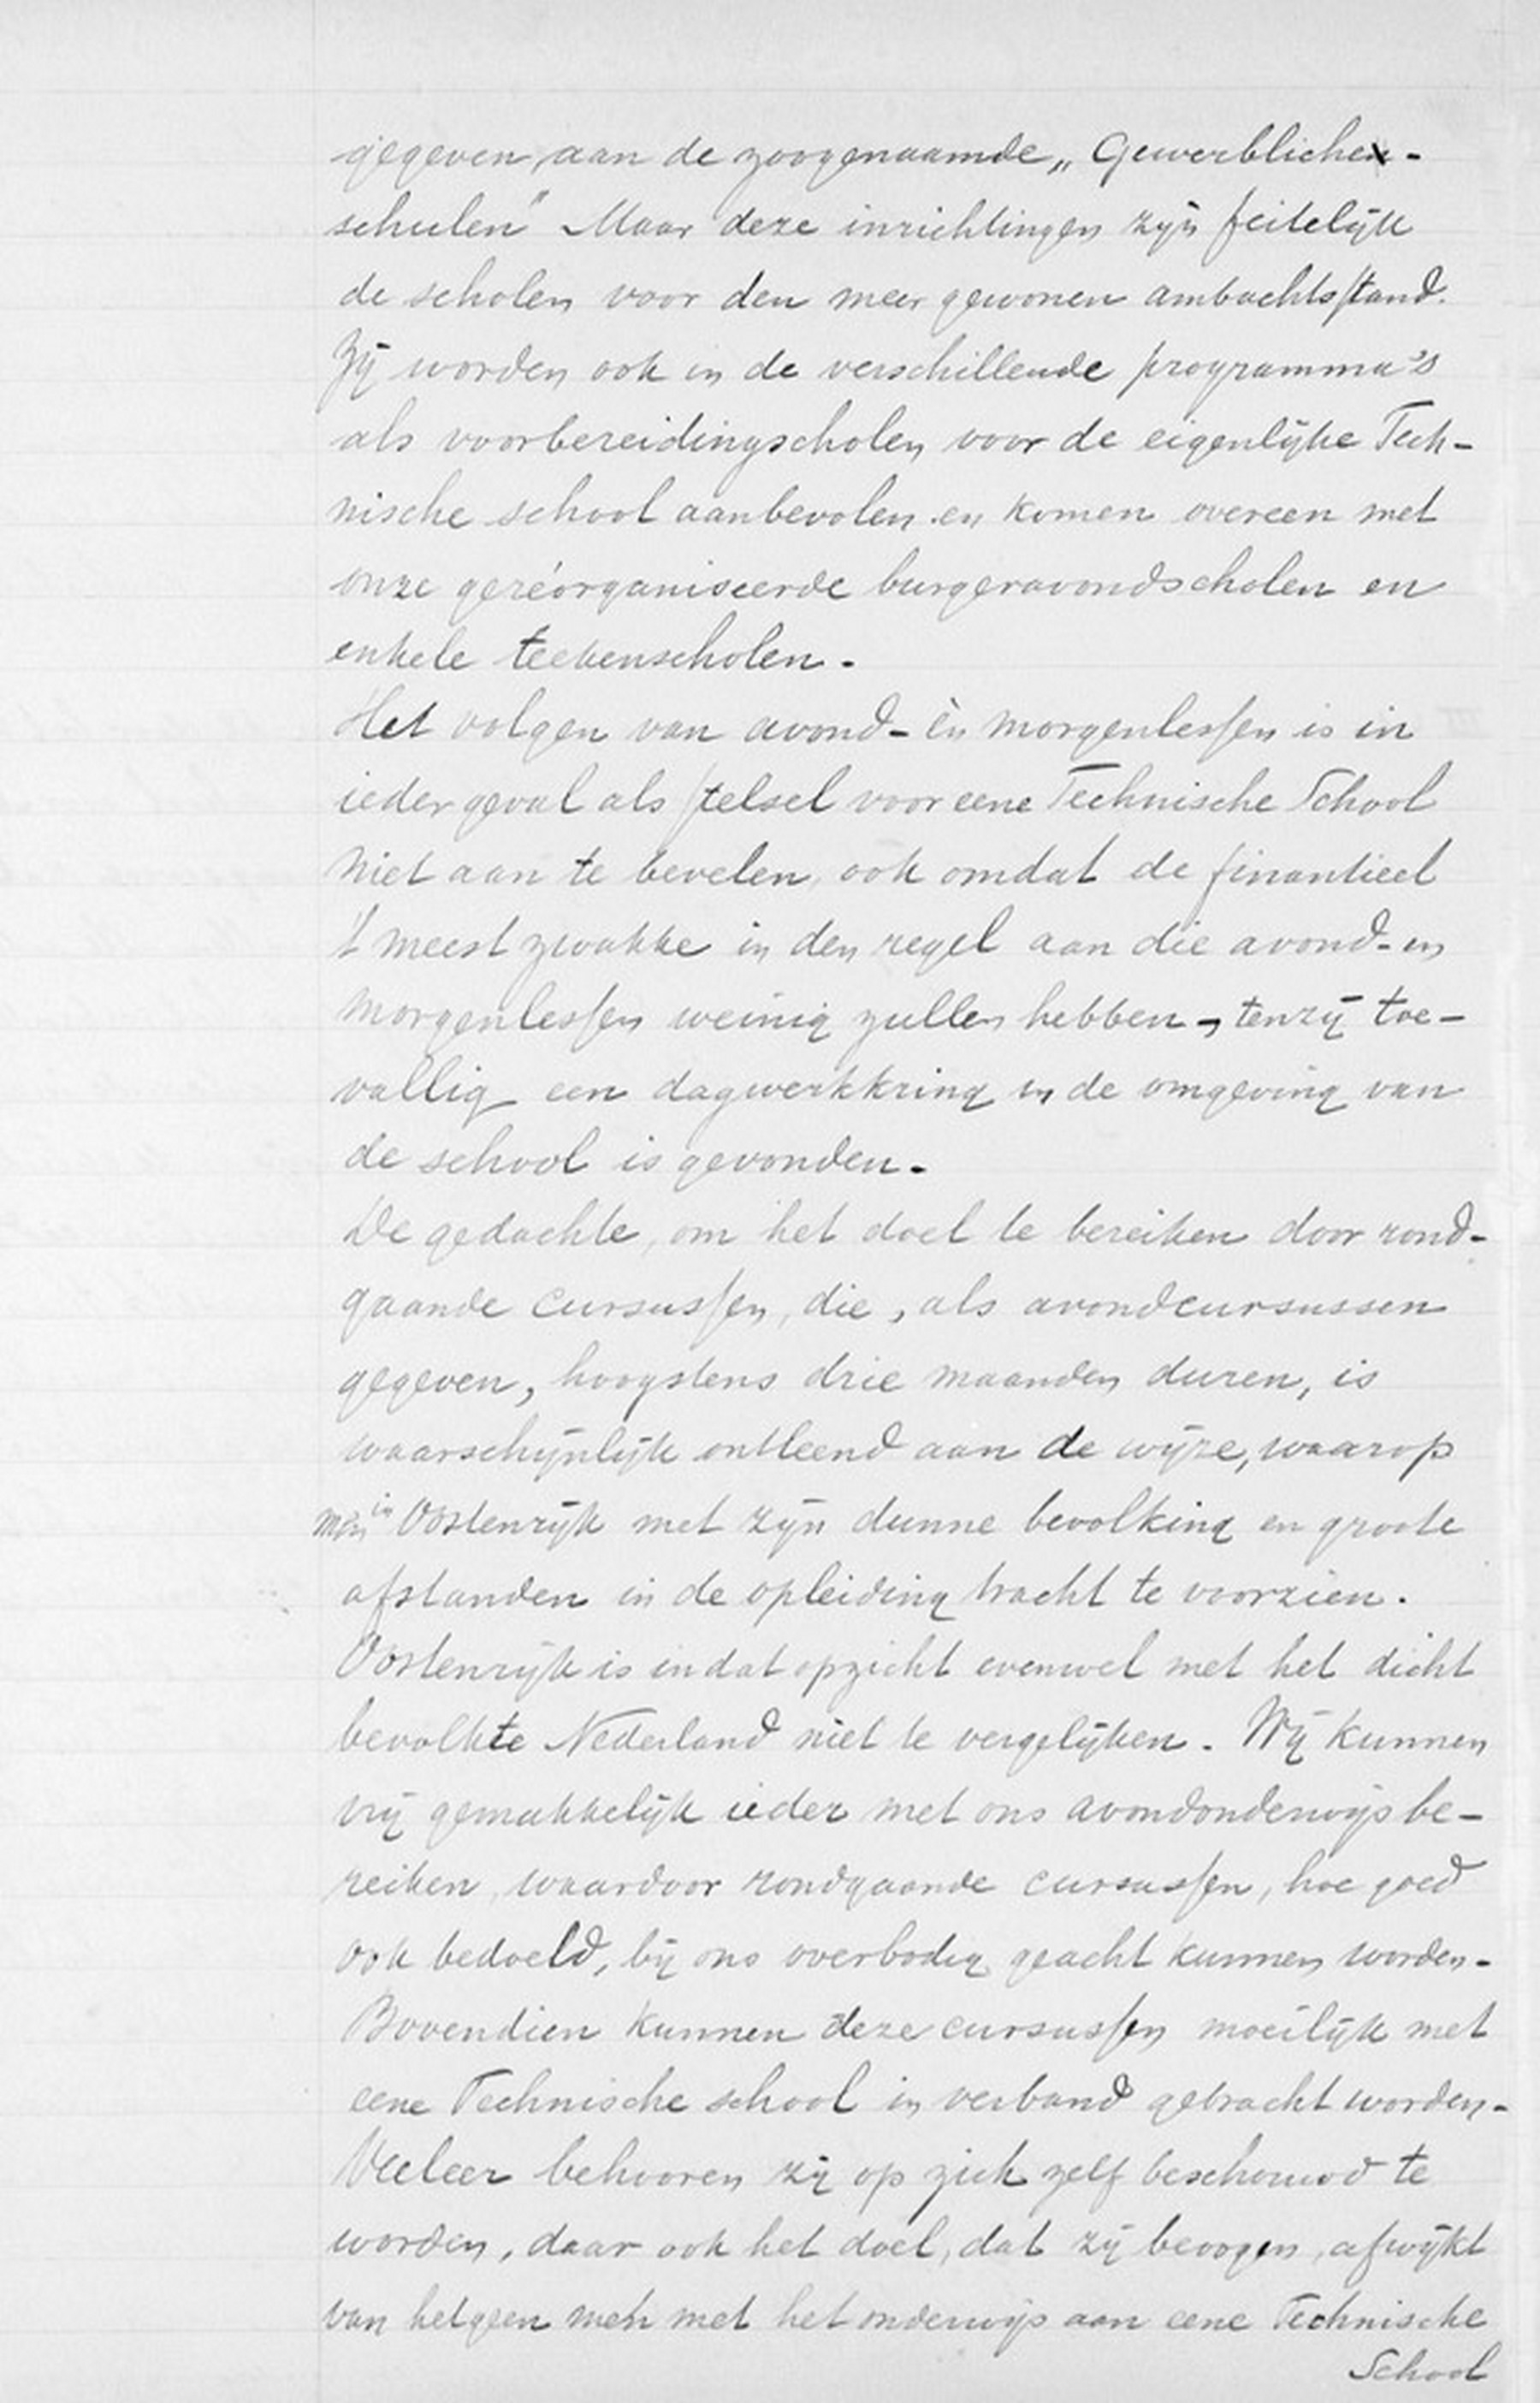 gegeven, aan de zoogenaamde „Gewerbliche-
schulen" Maar deze inrichtingen zijn feitelijk
de scholen voor den meer gewonen ambachtsstand.
Zij worden ook in de verschillende programma's
als voorbereidingscholen voor de eigenlijke Tech-
nische school aanbevolen en komen overeen met
onze geréorganiseerde burgeravondscholen en
enkele teekenscholen.
Het volgen van avond- èn morgenlessen is in
ieder geval als stelsel voor eene Technische School
niet aan te bevelen, ook omdat de finantieel
't meest zwakke in den regel aan die avond- en
morgenlessen weinig zullen hebben, tenzij toe-
vallig een dagwerkkring in de omgeving van
de school is gevonden.
De gedachte, om het doel te bereiken door rond-
gaande cursussen, die, als avondcursussen
gegeven, hoogstens drie maanden duren, is
waarschijnlijk ontleend aan de wijze, waarop
men in Oostenrijk met zijn dunne bevolking en groote
afstanden in de opleiding tracht te voorzien.
Oostenrijk is in dat opzicht evenwel met het dicht
bevolkte Nederland niet te vergelijken. Wij kunnen
vrij gemakkelijk ieder met ons avondonderwijs be-
reiken, waardoor rondgaande cursussen, hoe goed
ook bedoeld, bij ons overbodig geacht kunnen worden.
Bovendien kunnen deze cursussen moeilijk met
eene Technische school in verband gebracht worden.
Veeleer behooren zij op zich zelf beschouwd te
worden, daar ook het doel, dat zij beoogen, afwijkt
van hetgeen men met het onderwijs aan eene Technische
School